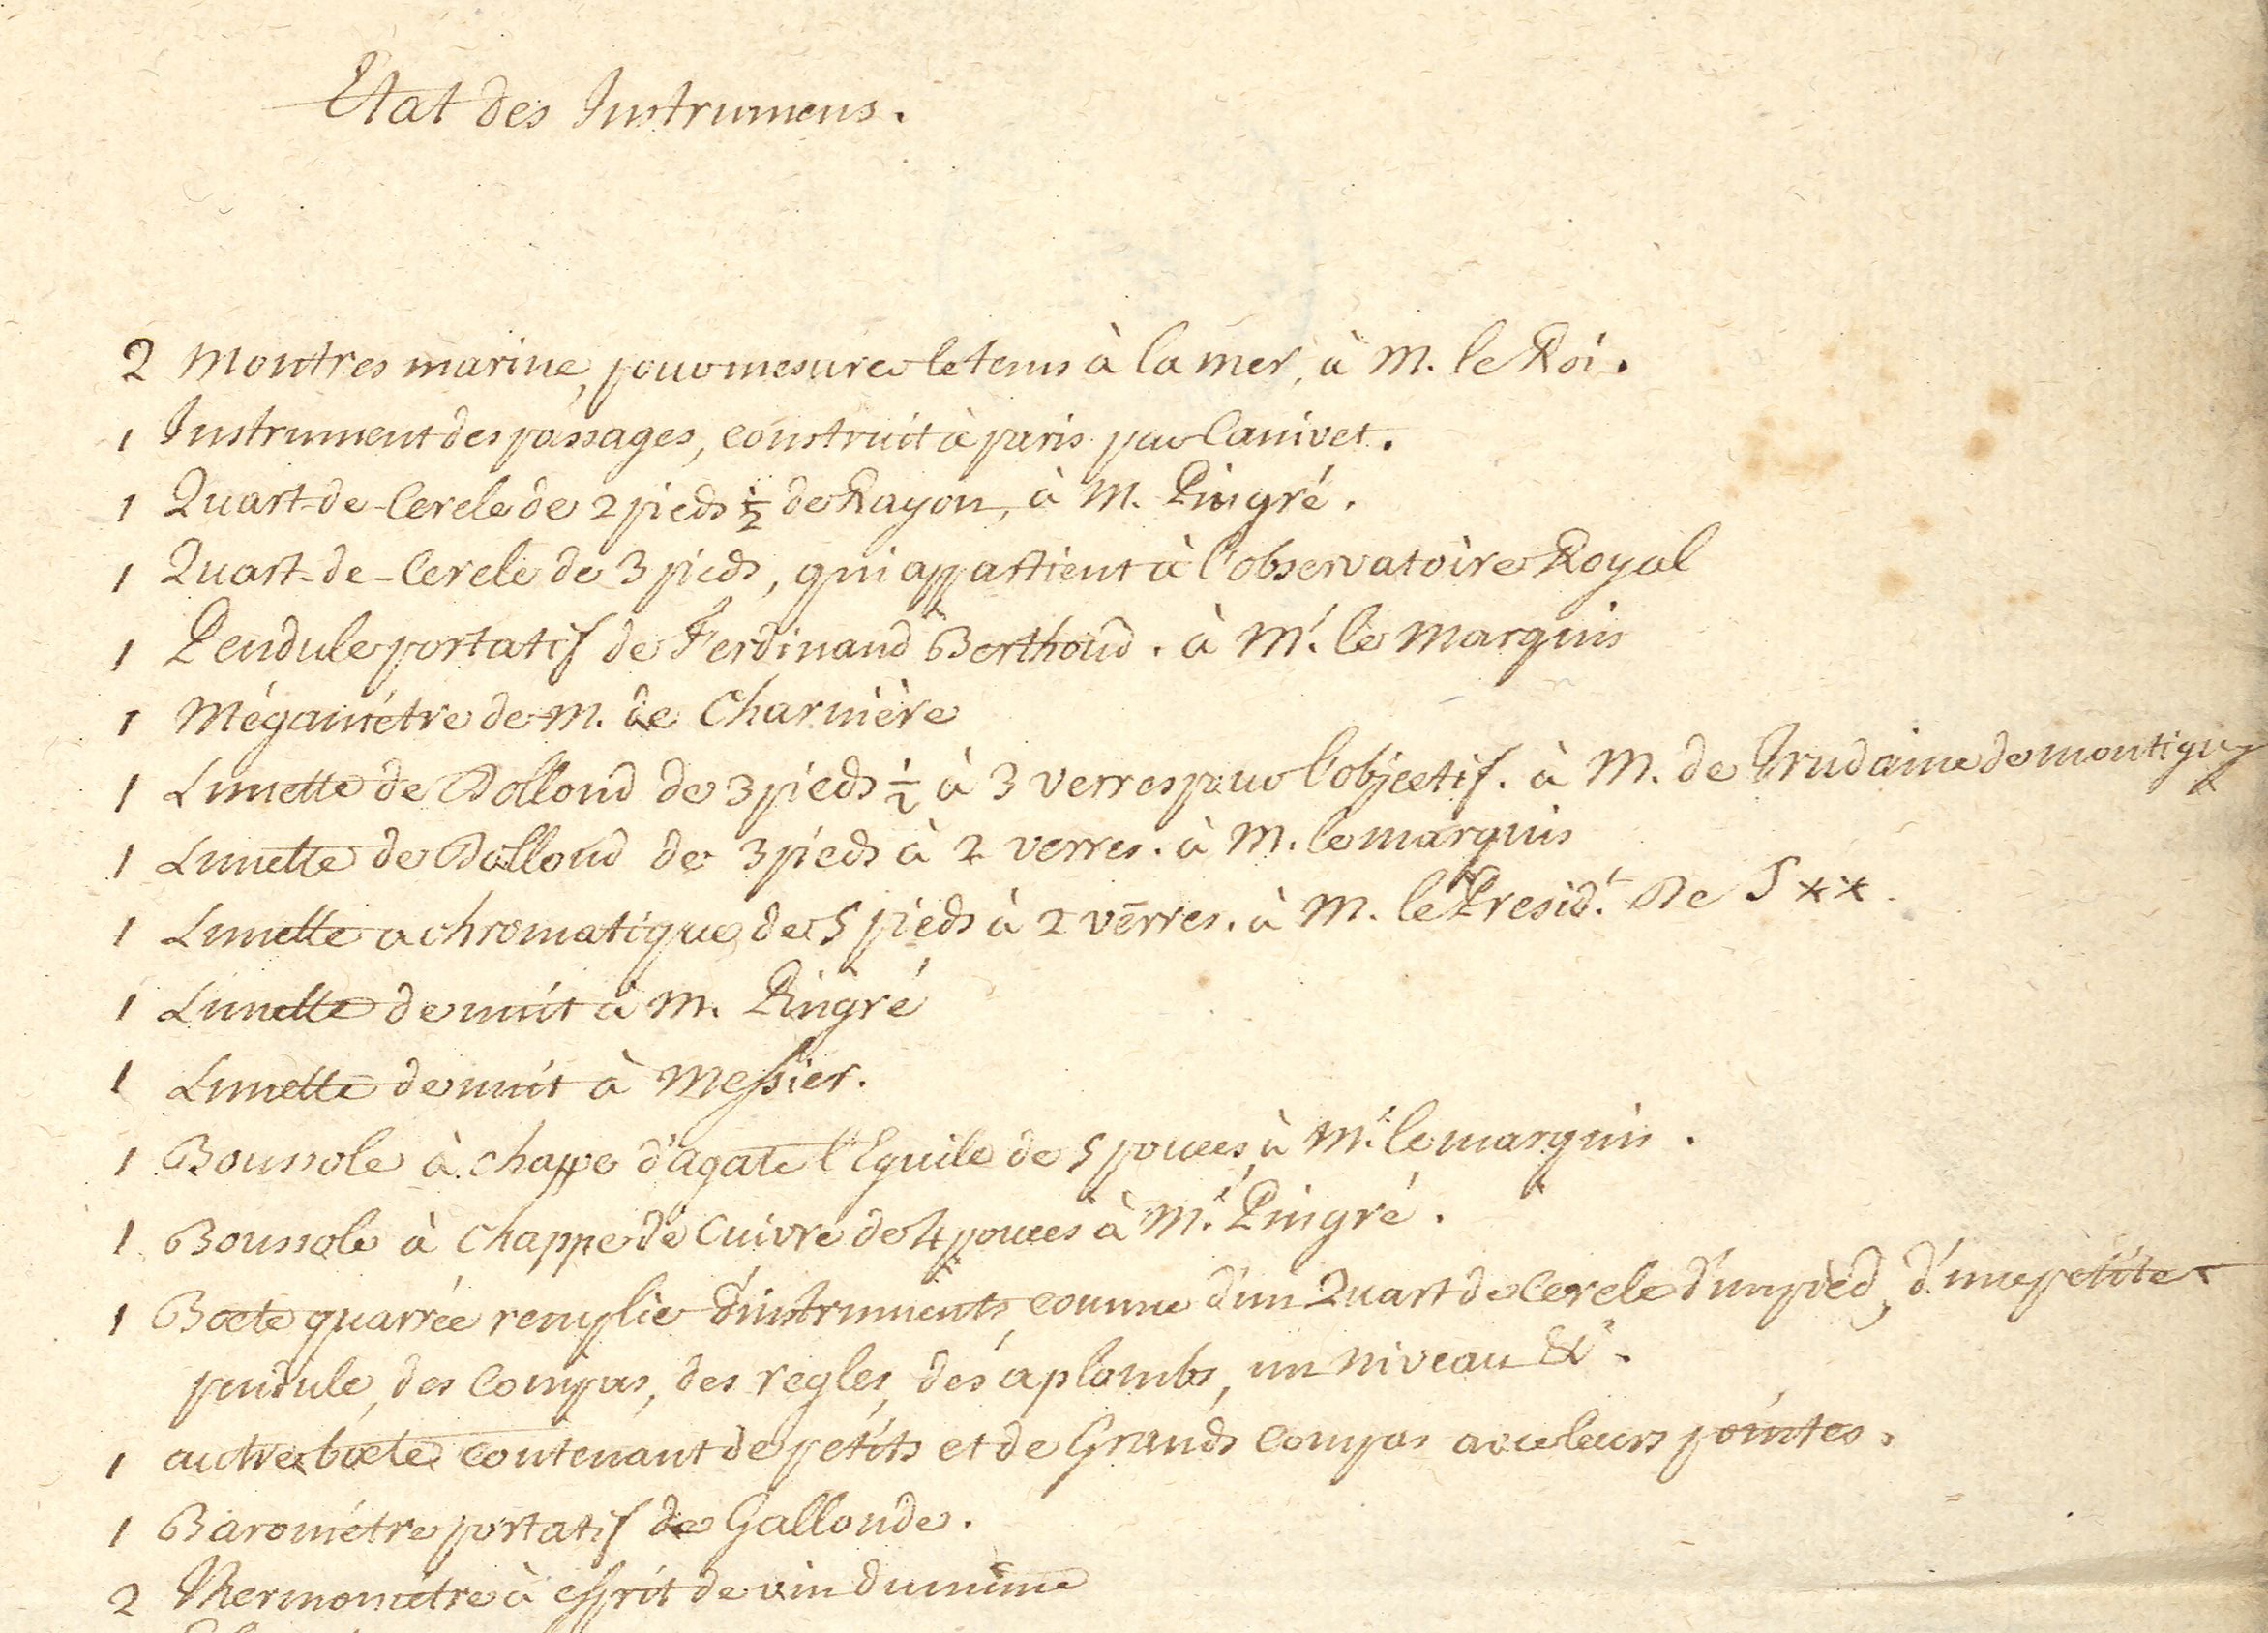 Etat des Instrumens.
2 Montres marine, pour mesurer le tems à la mer, à M. le Roi.
1 Instrument des passages, construit à paris par Canivet.
1 Quart-de-Cercle de 2 pieds ½ de Rayon, à M. Pingré.
1 Quart-de-Cercle de 3 pieds, qui appartient à l'observatoire Royal
1 Pendule portatif de Ferdinand Berthoud. à Mr. le Marquis
1 Mégamétre de M. de Charnière
1 Lunette de Dollond de 3 pieds ½ à 3 verres pour l'objectif. à M. de Trudaine de montigny
1 Lunette de Dollond de 3 pieds à 2 verres. à M. le marquis
1 Lunette achromatique de 5 pieds à 2 verres. à M. le Presidt. De S**.
1 Lunette de nuit à M. Pingré
1 Lunette de nuit à Messier.
1 Boussole à chappe d'agate l'Eguile de 5 pouces, à Mr. le marquis.
1 Boussole à chappe de cuivre de 4 pouces à Mr. Pingré.
1 Boete quarrée remplie d'instruments, comme d'un Quart de Cercle d'un pied, d'une petite
pendule, des Compas, des regles, des aplombs, un niveau &c.
1 autre boete contenant de petits et de Grands Compas avec leurs pointes.
1 Barométre portatif de Gallonde.
2 Thermométre à esprit de vin du même